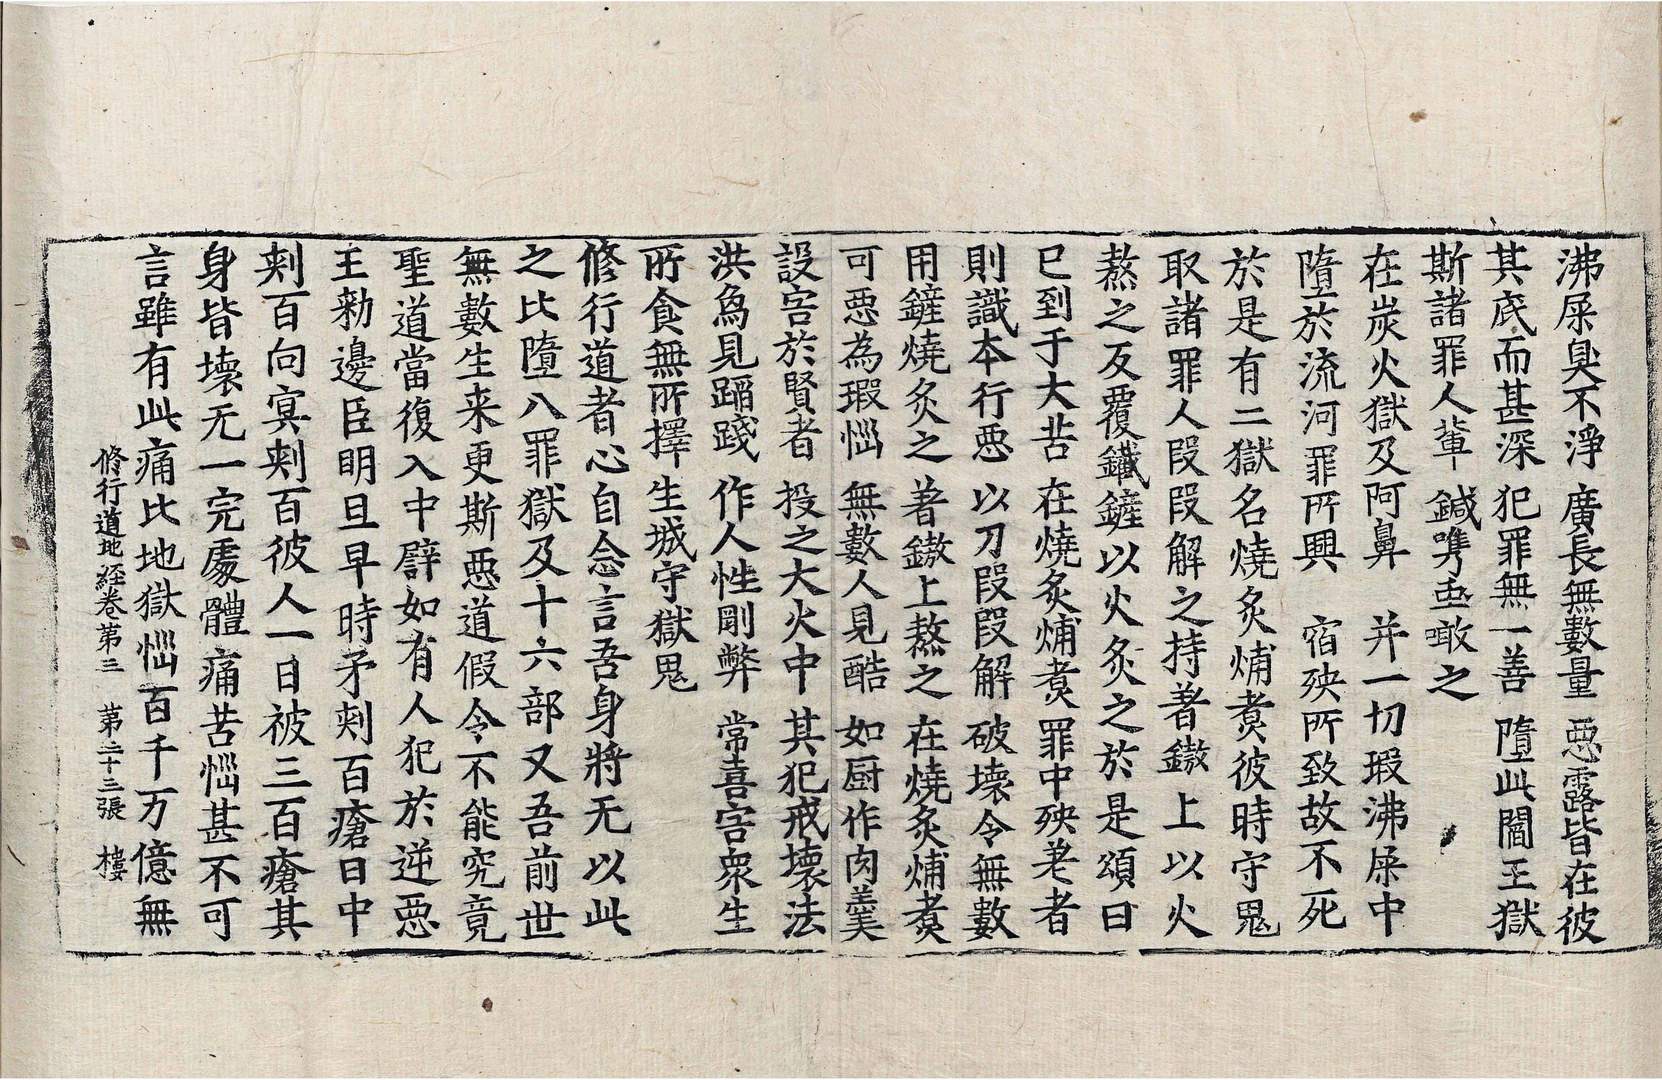 沸屎臭不淨 廣長無數量 惡露皆在彼
其底而甚深 犯罪無一善 墮此閻王獄
斯諸罪人輩 鍼㗱虫噉之
在炭火獄及阿鼻 并一切瑕沸屎中
墮於流河罪所興 宿殃所致故不死
於是有二獄名燒炙煿煑彼時守鬼
取諸罪人段段解之持著鏊上以火
熬之反覆鐵鏟以火炙之於是頌曰
已到于大苦 在燒炙煿煑 罪中殃老者
則識本行惡 以刀段段解 破壞令無數
用鏟燒炙之 著鏊上熬之 在燒炙煿煑
可惡為瑕惱 無數人見酷 如厨作肉羹
設害於賢者 投之大火中 其犯戒壞法
洪烏見蹹踐 作人性剛弊 常喜害衆生
所食無所擇 生城守獄鬼
修行道者心自念言吾身將无以此
之比墮八罪獄及十六部又吾前世
無數生来更斯惡道假令不能究竟
聖道當復入中譬如有人犯於逆惡
王勑邊臣明旦早時矛刾百瘡日中
刾百向冥刾百彼人一日被三百瘡其
身皆壞无一完處體痛苦惱甚不可
言雖有此痛比地獄惱百千万億無
修行道地經卷第三 第二十三張 樓